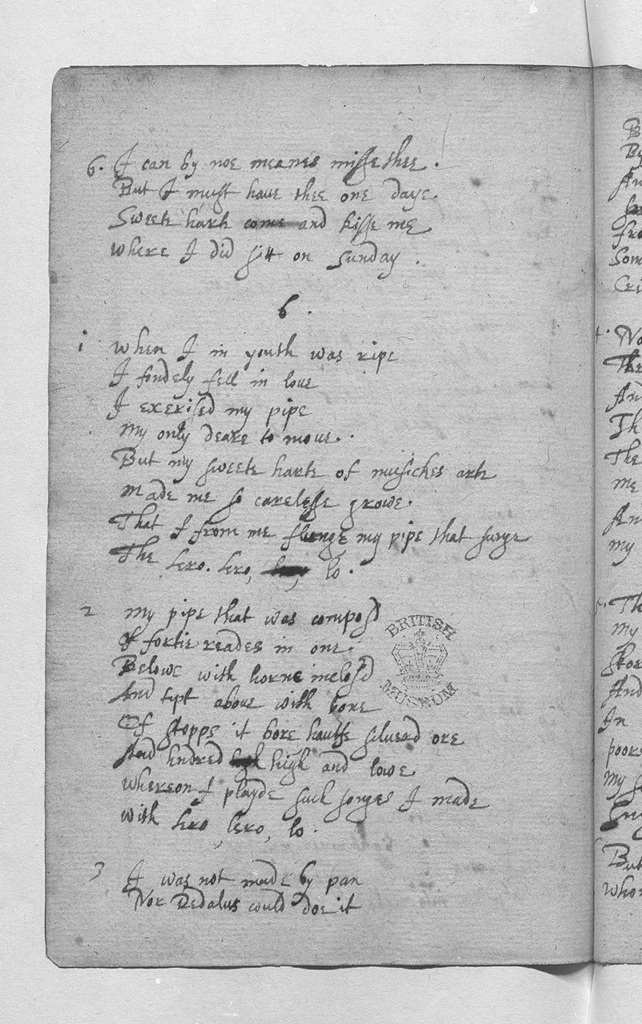 6. I can by noe meanes misse thee.
But I must haue thee one daye.
Sweete hart come and kisse me
where I did sitt on Sunday.
6.
1 When I in youth was ripe
I fondely fell in loue
I exerised my pipe
my only deare to moue.
But my sweete harte of musickes arte
made me so carelesse growe.
That I from me flunge my pipe that sunge
The lero. lero, lo.
2 my pipe that was composd
Of fortie reades in one.
Belowe with horne inclosd
And tipt aboue with bone
Of stopps it bore siluerd ore
And hndred high and lowe
whereon I playde such songes I made
with lero, lero, lo.
BRITISH MUSEUM
3 It was not made by pan
Nor Dedalus could doe it